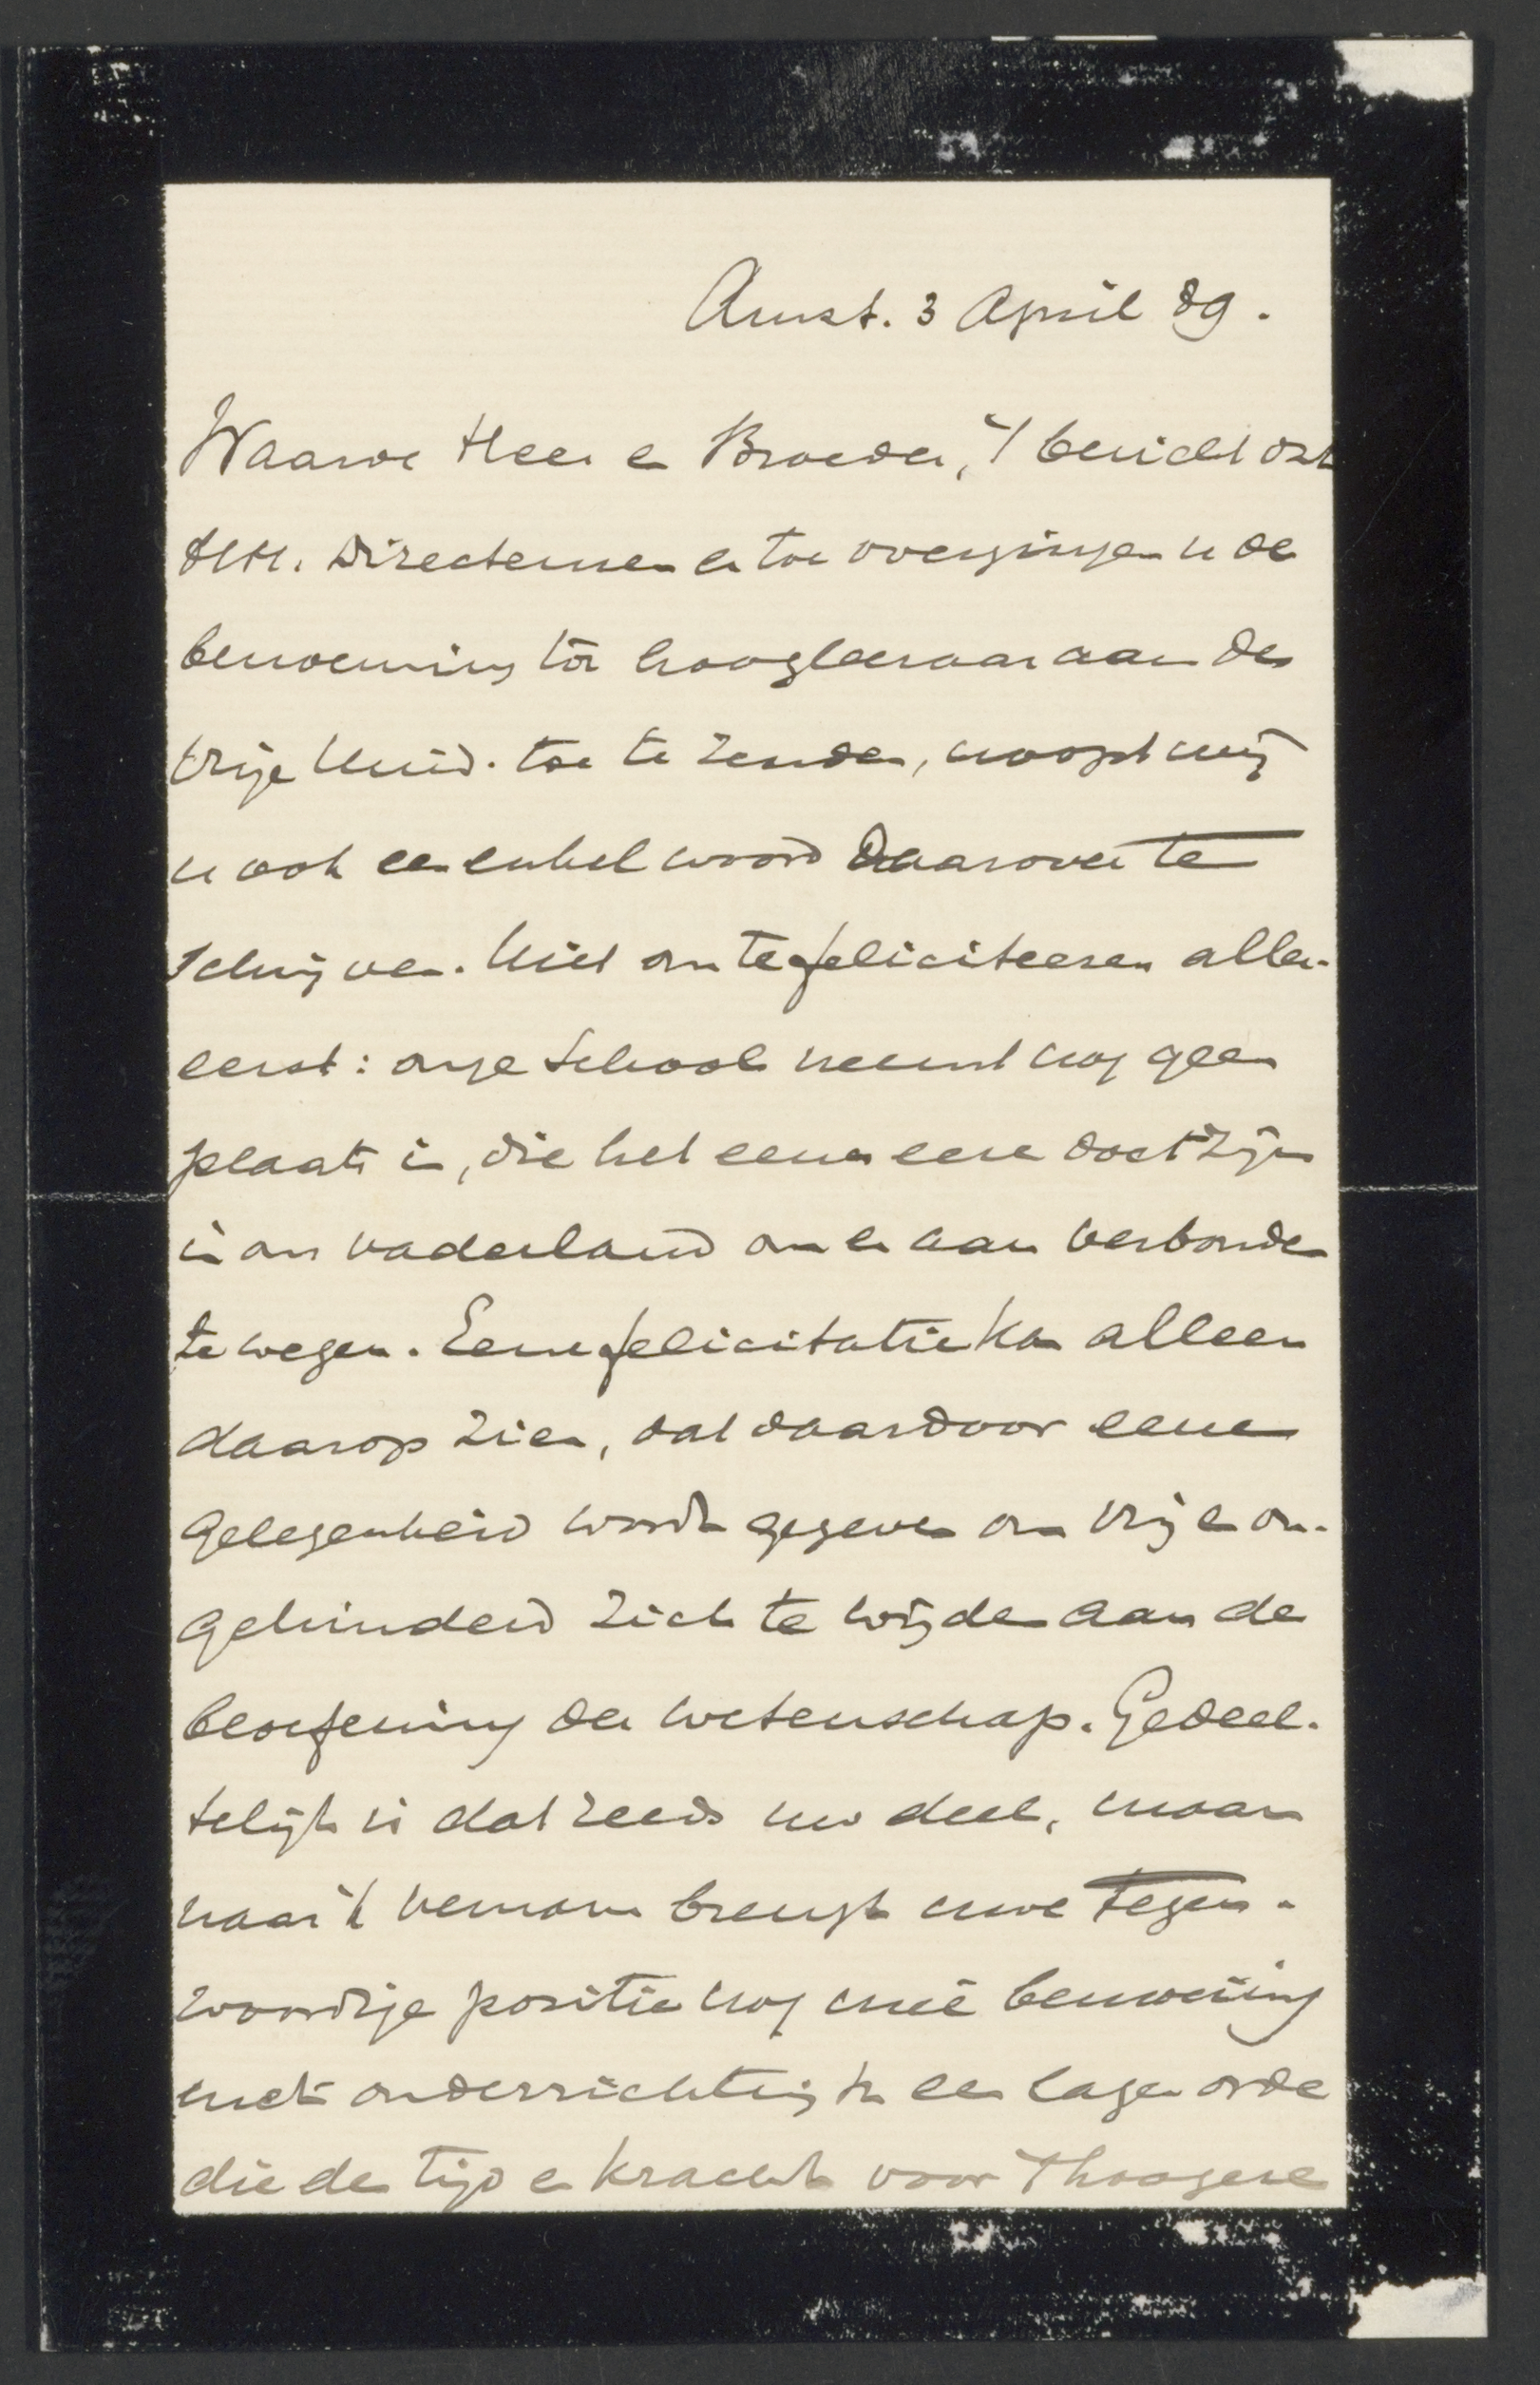 Amst. 3 April 89.
Waarde Heer en Broeder, 't bericht dat
HH. Directeuren er toe overgingen u de
benoeming tot hoogleeraar aan de
Vrije Univ. toe te zenden, noopt mij
u ook een enkel woord daarover te
schrijven. Niet om te feliciteeren aller-
eerst: onze School neemt nog geen
plaats in, die het eene eere doet zijn
in ons vaderland om er aan verbonden
te wezen. Eene felicitatie kan alleen
daarop zien, dat daardoor eene
gelegenheid wordt gegeven om vrij en on-
gehinderd zich te wijden aan de
beoefening der wetenschap. Gedeel-
telijk is dat reeds uw deel, maar
naar ik vernam brengt uwe tegen-
woordige positie nog meê bemoeiing
met onderrichting in een lager orde
die den tijd en kracht voor 't hoogere